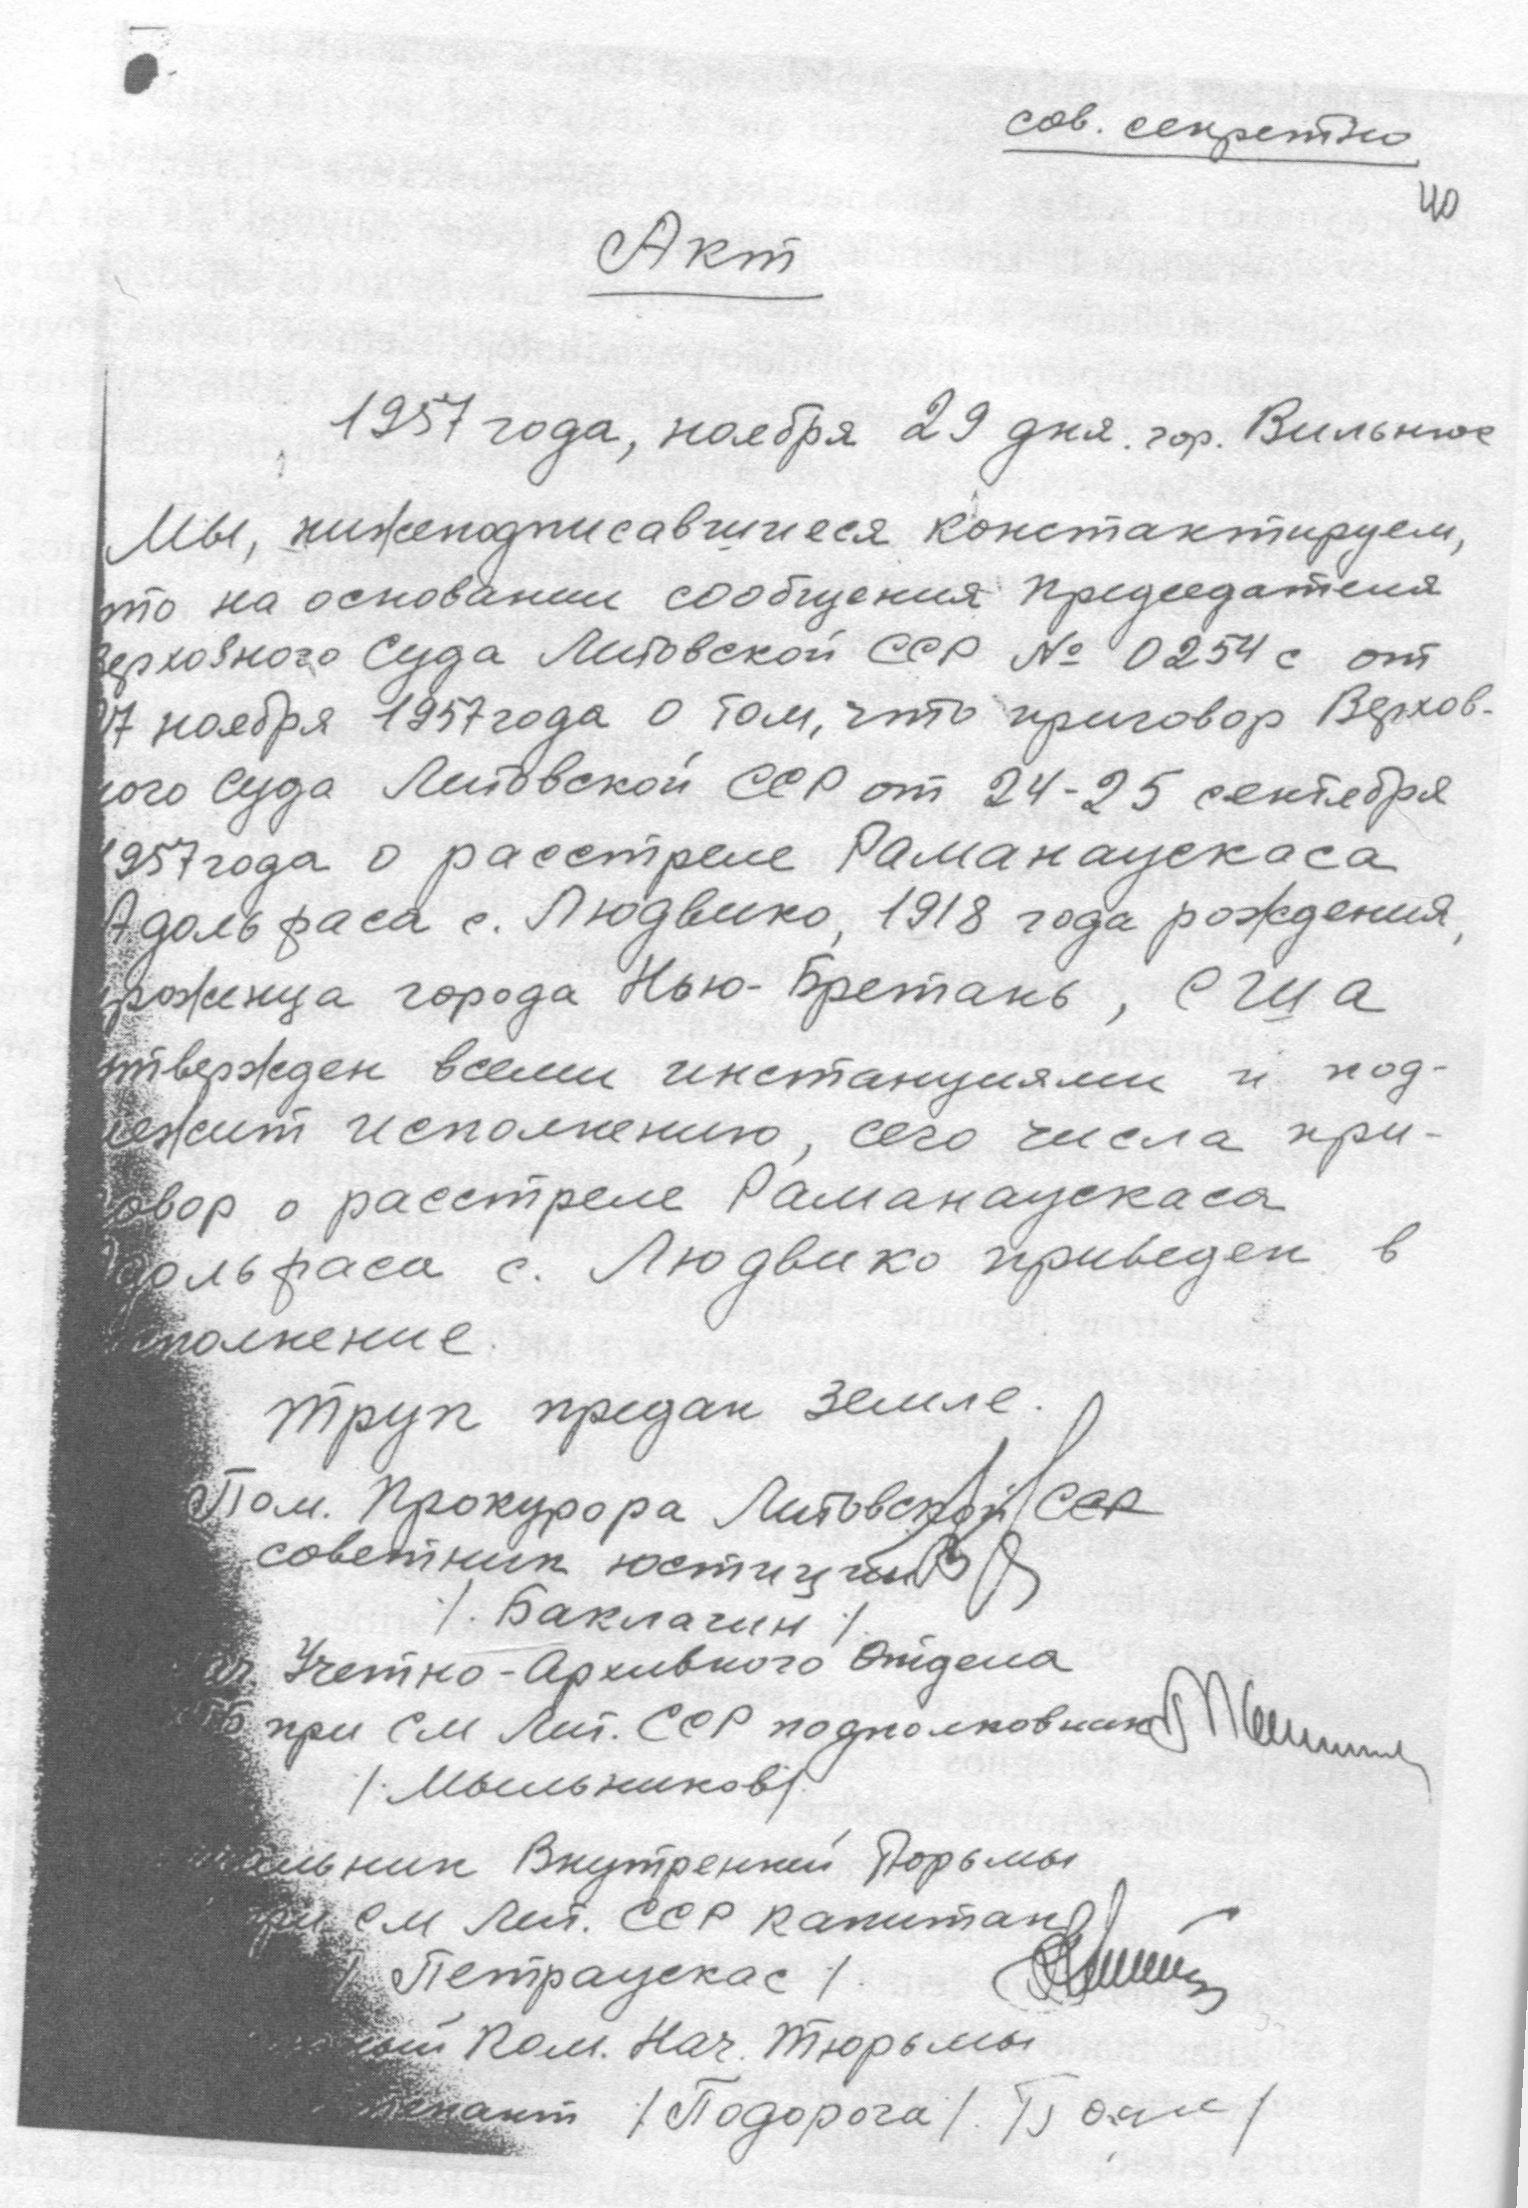 сов. секретно
40
Акт
1957 года, ноября 29 дня. гор. Вильнюс
Мы, нижеподписавшиеся константируем,
что на основании сообщения Председателя
Верховного Суда Литовской ССР № 0254 с от
ноября 1957 года о том, что приговор Верхов-
ного Суда Литовской ССР от 24-25 сентября
1957 года о расстреле Раманаускаса
Адольфаса с. Людвико, 1918 года рождения,
уроженца города Нью-Бретань, США
утвержден всеми инстанциями и под-
лежит исполнению, сего числа при-
говор о расстреле Раманаускаса
Адольфаса с. Людвико приведен в
исполнение.
Труп предан земле.
Пом. Прокурора Литовской ССР
советник юстиции
/. Баклагин /.
Нач Учетно-Архивного Отдела
при СМ Лит. ССР подполковник
/. Мыльников /.
Начальник Внутренней Тюрьмы
при СМ Лит. ССР капитан
/. Петраускас /.
Пом. Нач. Тюрьмы
/ Подорога /.